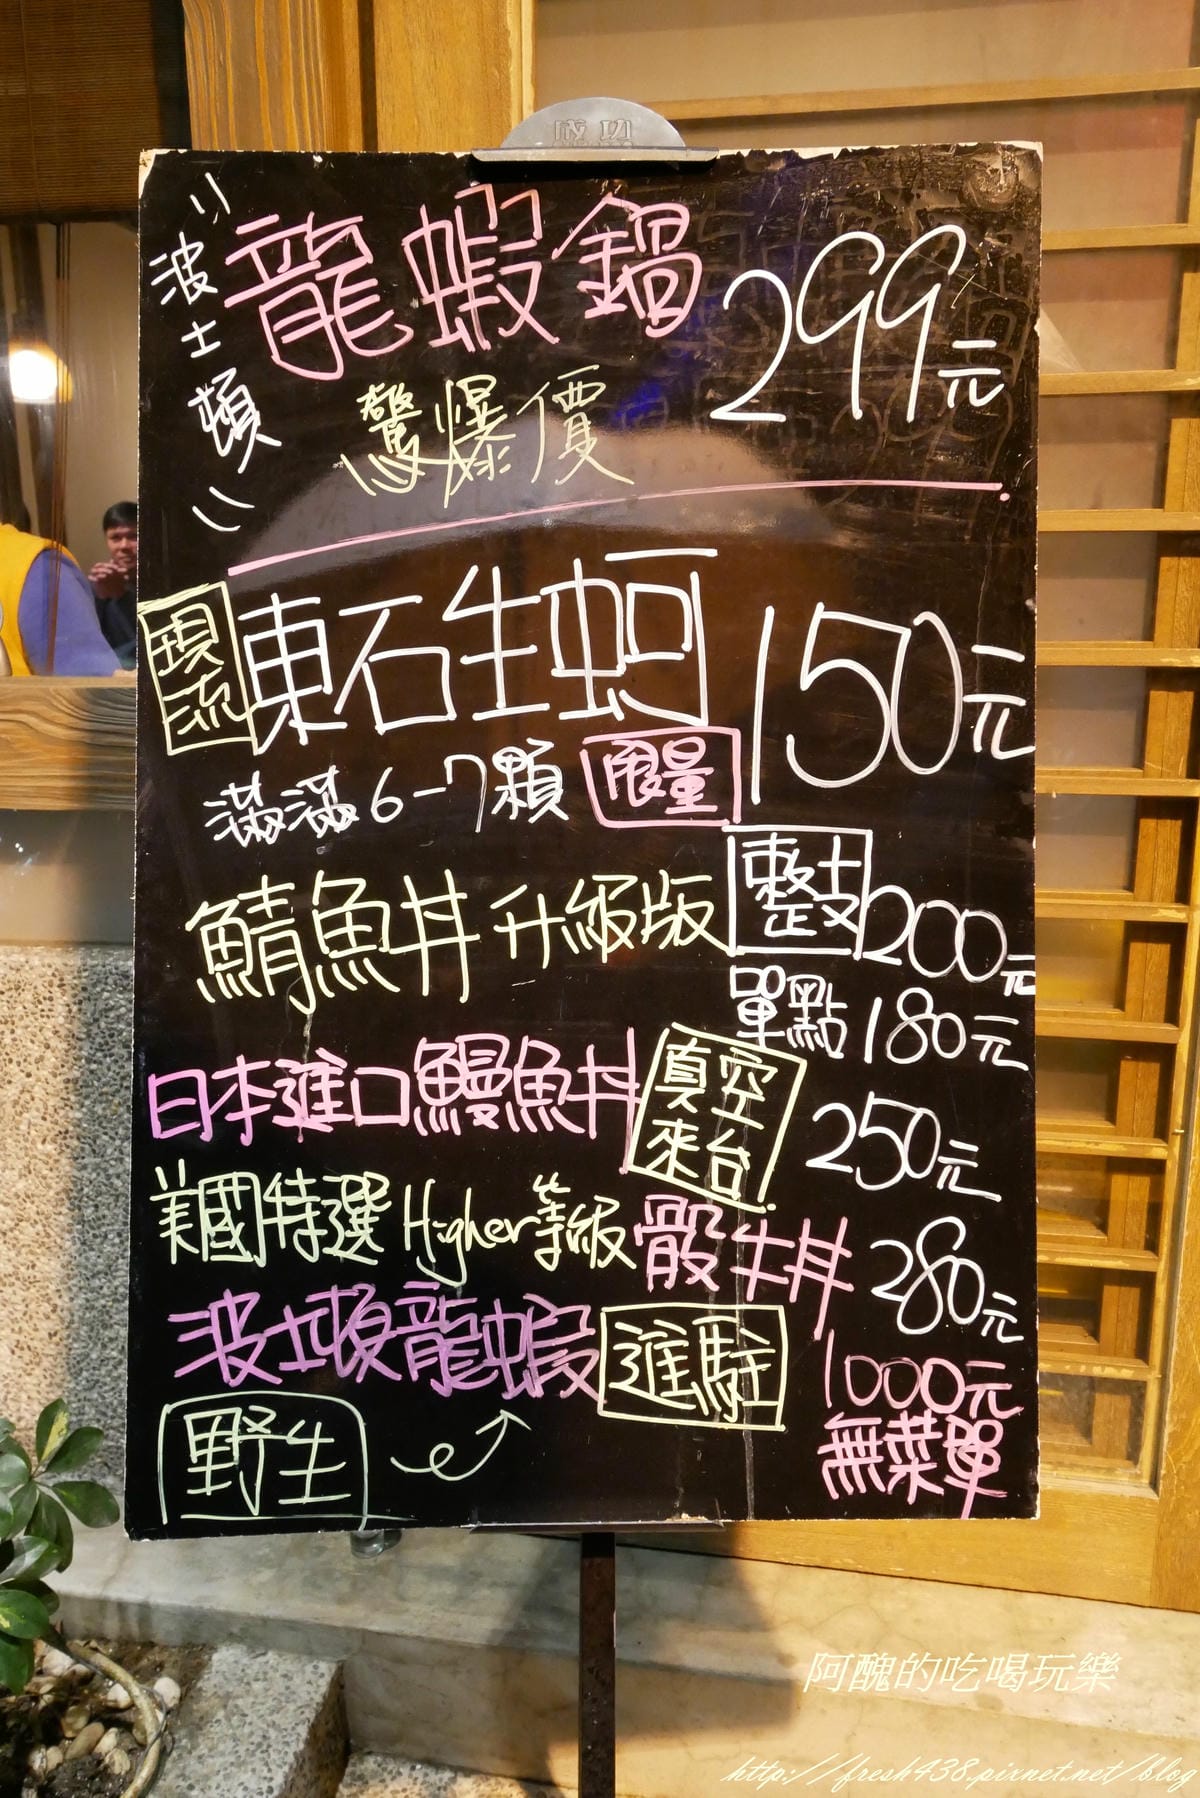 成功
波士頓
龍蝦鍋 299元
驚爆價
現流 東石生蚵 150元
滿滿6-7顆 限量
鯖魚丼 升級版 整支 200元
單點 180元
日本進口鰻魚丼 真空來台 250元
美國特選Higher等級骰牛丼 280元
波士頓龍蝦 進駐 1000元
野生 無菜單
阿醜的吃喝玩樂
http://fresh438.pixnet.net/blog